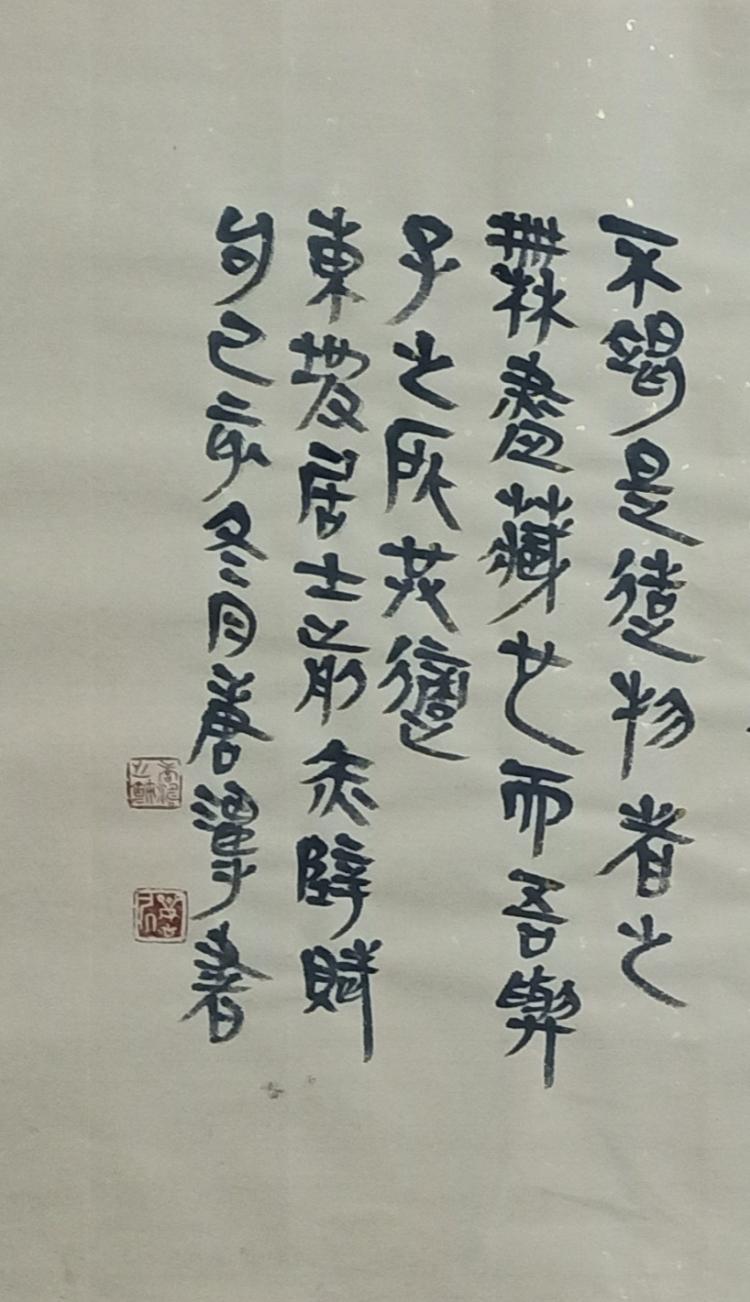 不竭是造物者之
無盡藏也而吾與
子之所共適
東坡居士前赤壁賦
句己亥冬月善澤書